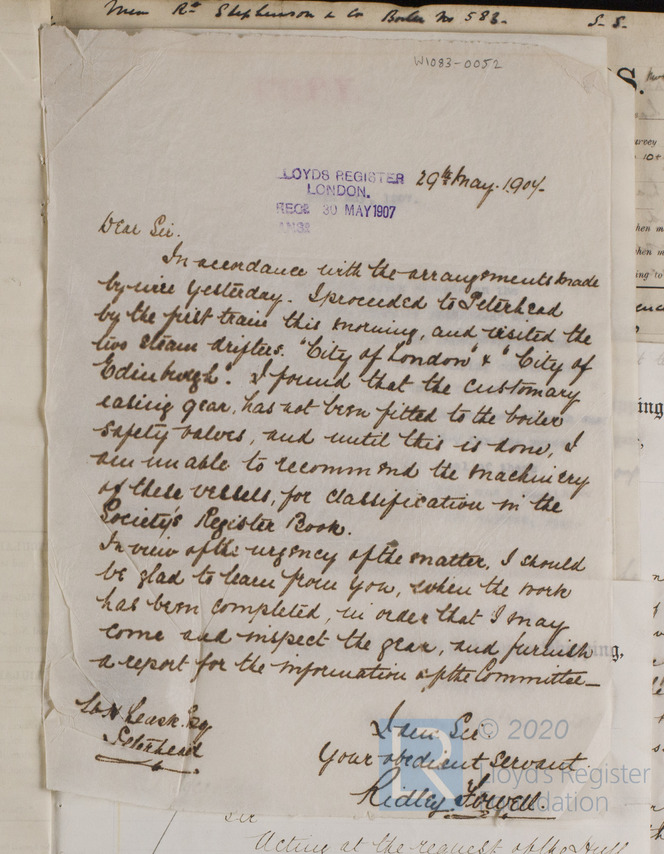 Mess Rt Stephenson & Co Boiler No 583. S.S.
W1083-0052
COPY.
LLOYDS REGISTER
LONDON.
RECD 30 MAY 1907
ANSD
29th May. 1907.
Dear Sir.
In accordance with the arrangements made
by wire yesterday. I proceeded to Peterhead
by the first train this morning, and visited the
two steam drifters. "City of London" & "City of
Edinburgh". I found that the customary
easing gear, has not been fitted to the boiler
safety valves, and until this is done, I
am unable to recommend the machinery
of these vessels, for classification in the
Society's Register Book.
In view of the urgency of the matter, I should
be glad to learn from you, when the work
has been completed, in order that I may
come and inspect the gear, and furnish
a report for the information of the Committee_
I am Sir.
Your obedient servant
Ridley Fowell
Leask. Esq
Peterhead
© 2020
Lloyd's Register
Foundation
sir
Acting at the request of the Hull